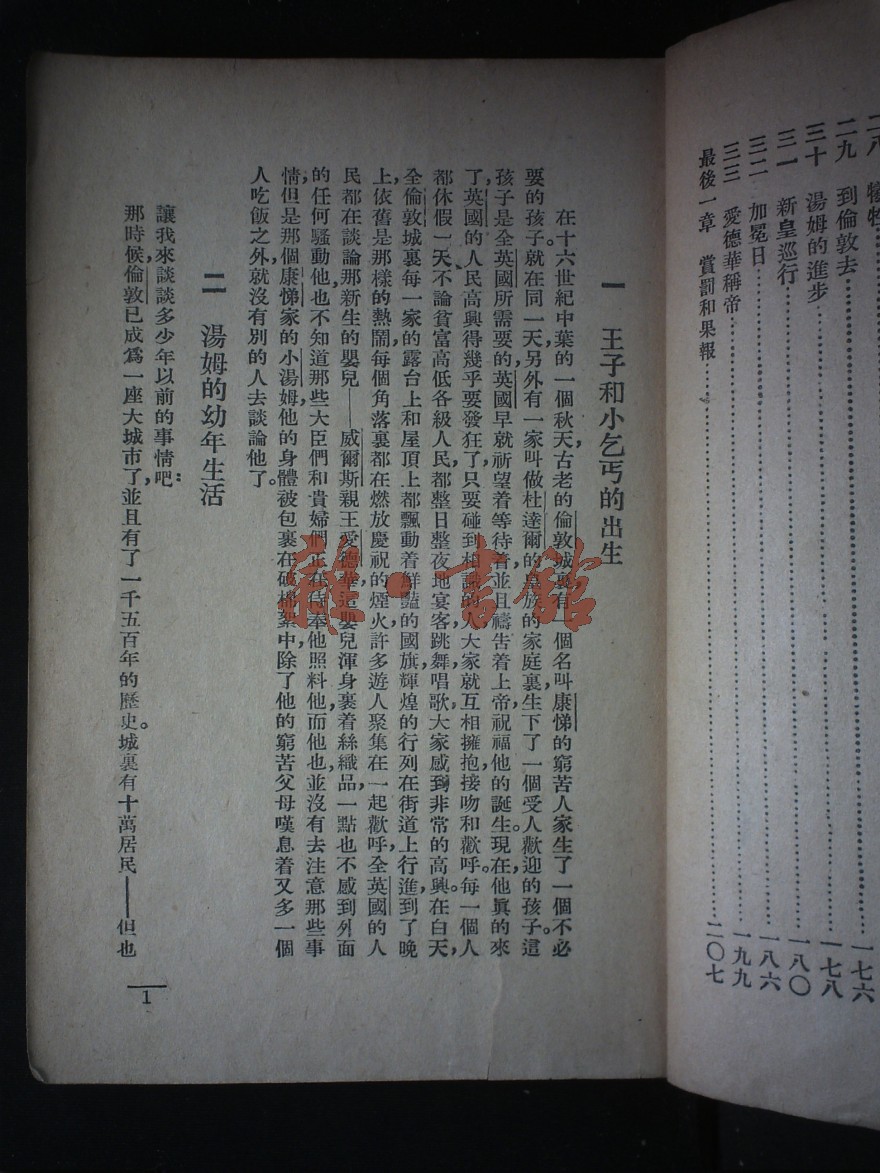 二八 犧牲…………一七六
二九 到倫敦去…………一七八
三十 湯姆的進步…………一八〇
三一 新皇巡行…………一八六
三二 加冕日…………一九九
三三 愛德華稱帝…………二〇七
最後一章 賞罰和果報…………
一 王子和小乞丐的出生
在十六世紀中葉的一個秋天,古老的倫敦城裏有一個名叫康悌的窮苦人家生了一個不必
要的孩子。就在同一天,另外有一家叫做杜達爾的富族的家庭裏生下了一個受人歡迎的孩子。這
孩子是全英國所需要的,英國早就祈望着等待着,並且禱告着上帝祝福他的誕生。現在,他眞的來
了,英國的人民高興得幾乎要發狂了。只要碰到相識的人,大家就互相擁抱,接吻和歡呼。每一個人
都休假一天,不論貧富高低各級人民都整日整夜地宴客,跳舞,唱歌,大家感到非常的高興。在白天,
全倫敦城裏每一家的露台上和屋頂上都飄動着鮮豔的國旗,輝煌的行列在街道上行進,到了晚
上,依舊是那樣的熱鬧,每個角落裏都在燃放慶祝的煙火,許多遊人聚集在一起歡呼,全英國的人
民都在談論那新生的嬰兒——威爾斯親王愛德華,這嬰兒渾身裹着絲織品,一點也不感到外面
的任何騷動,他也不知道那些大臣們和貴婦們正在侍奉他,照料他,而他也並沒有去注意那些事
情。但是那個康悌家的小湯姆,他的身體被包裹在破棉絮中,除了他的窮苦父母嘆息着又多一個
人吃飯之外,就沒有別的人去談論他了。
二 湯姆的幼年生活
讓我來談談多少年以前的事情吧:
那時候,倫敦已成爲一座大城市了,並且有了一千五百年的歷史。城裏有十萬居民——但也
1
雜·書館